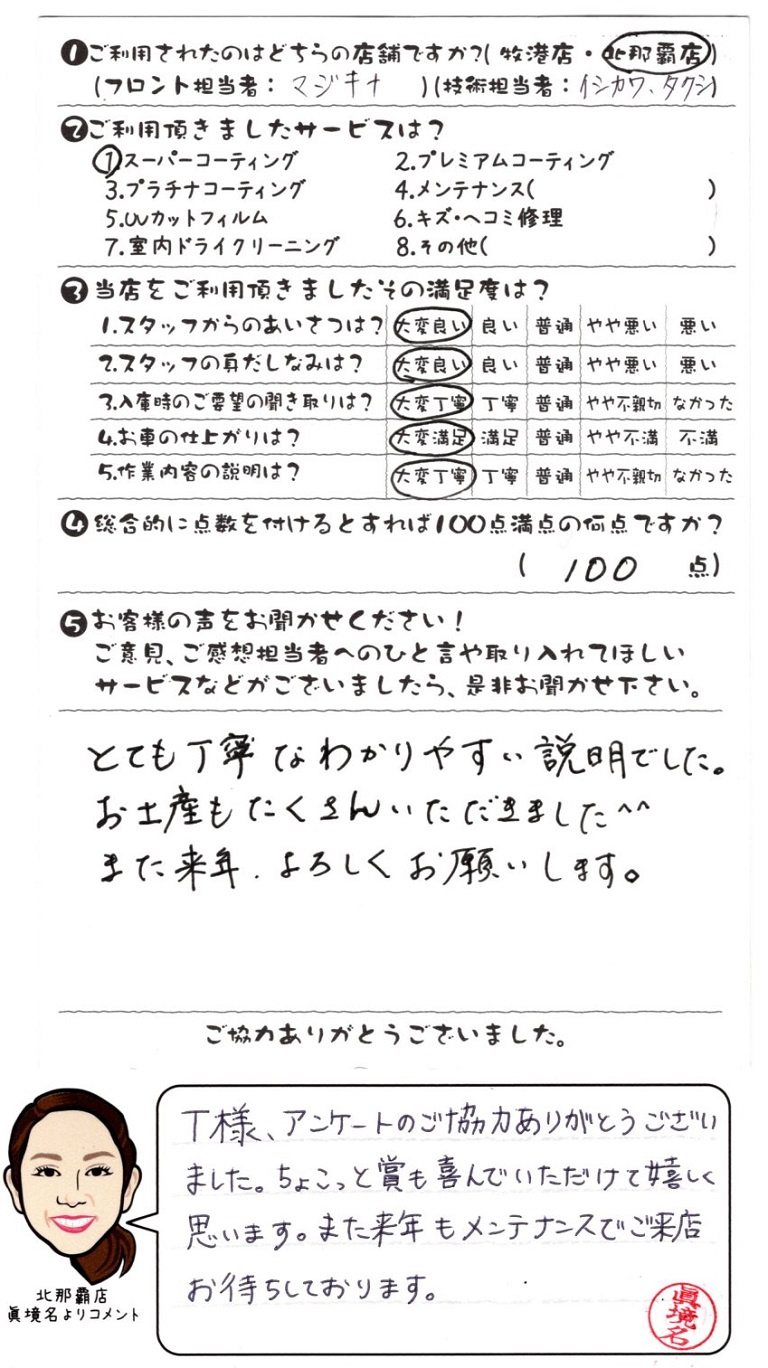 ❶ご利用されたのはどちらの店舗ですか?(牧港店・北那覇店)
(フロント担当者:マジキナ)(技術担当者:イシカワ、タクシ)
❷ご利用頂きましたサービスは?
1.スーパーコーティング 2.プレミアムコーティング
3.プラチナコーティング 4.メンテナンス( )
5.UVカットフィルム 6.キズ・ヘコミ修理
7.室内ドライクリーニング 8.その他( )
❸当店をご利用頂きましたその満足度は?
1.スタッフからのあいさつは? 大変良い 良い 普通 やや悪い 悪い
2.スタッフの身だしなみは? 大変良い 良い 普通 やや悪い 悪い
3.入庫時のご要望の聞き取りは? 大変丁寧 丁寧 普通 やや不親切 なかった
4.お車の仕上がりは? 大変満足 満足 普通 やや不満 不満
5.作業内容の説明は? 大変丁寧 丁寧 普通 やや不親切 なかった
❹総合的に点数を付けるとすれば100点満点の何点ですか?
( 100 点)
❺お客様の声をお聞かせください!
ご意見、ご感想担当者へのひと言や取り入れてほしい
サービスなどがございましたら、是非お聞かせ下さい。
とても丁寧なわかりやすい説明でした。
お土産もたくさんいただきました^^
また来年.よろしくお願いします。
ご協力ありがとうございました。
T様、アンケートのご協力ありがとうござい
ました。ちょこっと賞も喜んでいただけて嬉しく
思います。また来年もメンテナンスでご来店
お待ちしております。
北那覇店
眞境名よりコメント
眞境名